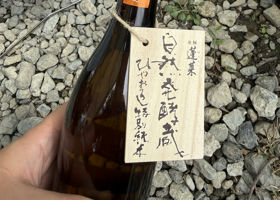 蓬莱
自然発酵蔵
ひやおろし特別純米